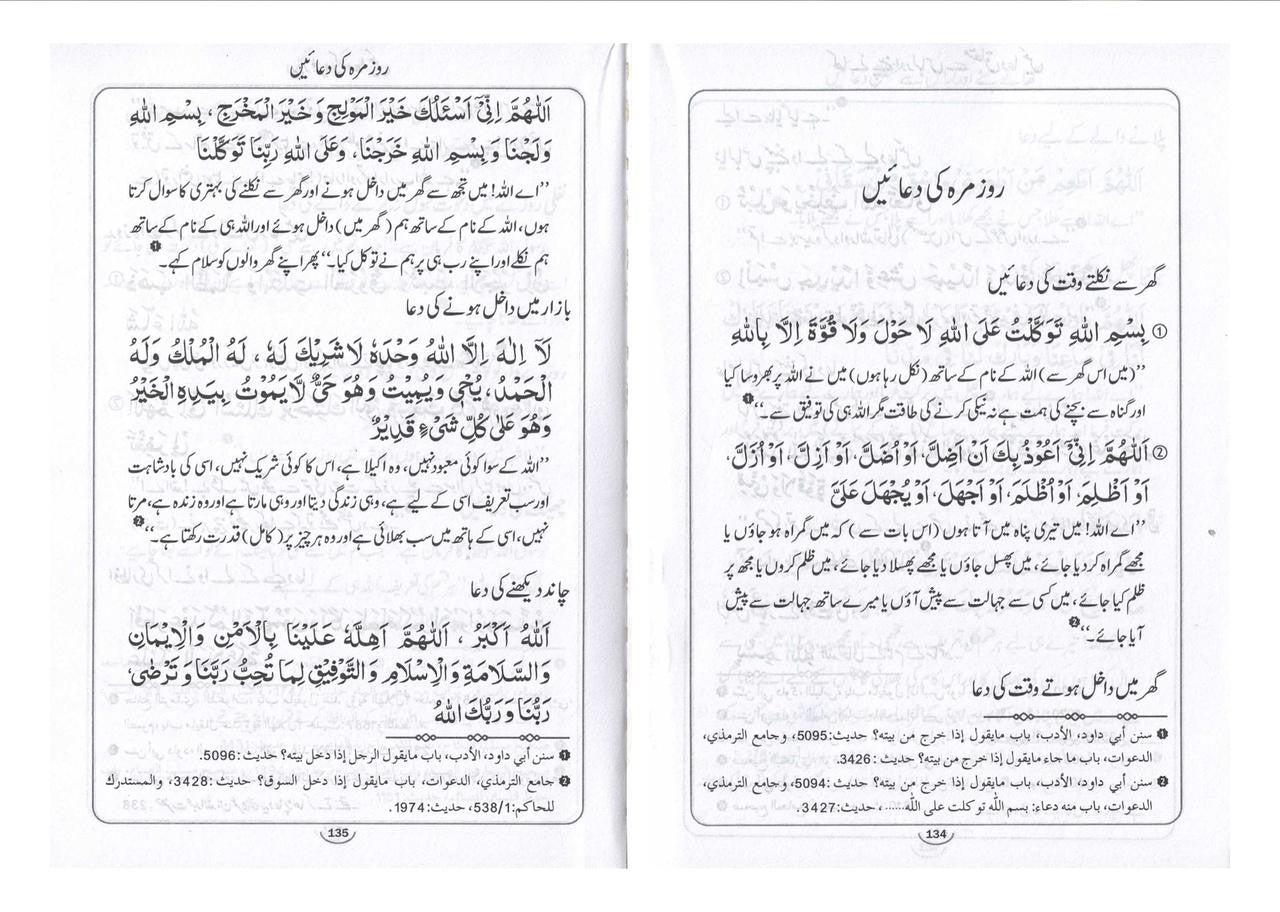 روزمرہ کی دعائیں
گھر سے نکلتے وقت کی دعائیں
① بِسْمِ اللهِ تَوَكَّلْتُ عَلَى اللهِ لَا حَوْلَ وَلَا قُوَّةَ اِلَّا بِاللهِ
’’(میں اس گھر سے) اللہ کے نام کے ساتھ (نکل رہا ہوں) میں نے اللہ پر بھروسا کیا
اور گناہ سے بچنے کی ہمت ہے نہ نیکی کرنے کی طاقت مگر اللہ ہی کی توفیق ہے۔‘‘❶
② اَللّٰهُمَّ اِنِّىْٓ اَعُوْذُ بِكَ اَنْ اَضِلَّ، اَوْ اُضَلَّ، اَوْ اَزِلَّ، اَوْ اُزَلَّ،
اَوْ اَظْلِمَ، اَوْ اُظْلَمَ، اَوْ اَجْهَلَ، اَوْ يُجْهَلَ عَلَىَّ
’’اے اللہ! میں تیری پناہ میں آتا ہوں (اس بات سے) کہ میں گمراہ ہو جاؤں یا
مجھے گمراہ کر دیا جائے، میں پھسل جاؤں یا مجھے پھسلا دیا جائے، میں ظلم کروں یا مجھ پر
ظلم کیا جائے، میں کسی سے جہالت سے پیش آؤں یا میرے ساتھ جہالت سے پیش
آیا جائے۔‘‘❷
گھر میں داخل ہوتے وقت کی دعا
❶ سنن أبي داود، الأدب، باب مايقول إذا خرج من بيته؟ حديث:5095، وجامع الترمذي،
الدعوات، باب ما جاء مايقول إذا خرج من بيته؟ حديث :3426.
❷ سنن أبي داود، الأدب، باب مايقول إذا خرج من بيته؟ حديث:5094، وجامع الترمذي،
الدعوات، باب منه دعاء: بسم الله توكلت على الله......، حديث:3427.
134
روزمرہ کی دعائیں
اَللّٰهُمَّ اِنِّىْٓ اَسْئَلُكَ خَيْرَ الْمَوْلِجِ وَ خَيْرَ الْمَخْرَجِ ، بِسْمِ اللهِ
وَلَجْنَا وَ بِسْمِ اللهِ خَرَجْنَا، وَعَلَى اللهِ رَبِّنَا تَوَكَّلْنَا
’’اے اللہ! میں تجھ سے گھر میں داخل ہونے اور گھر سے نکلنے کی بہتری کا سوال کرتا
ہوں، اللہ کے نام کے ساتھ ہم (گھر میں) داخل ہوئے اور اللہ ہی کے نام کے ساتھ
ہم نکلے اور اپنے رب ہی پر ہم نے توکل کیا۔‘‘ پھر اپنے گھر والوں کو سلام کہے۔❶
بازار میں داخل ہونے کی دعا
لَآ اِلٰهَ اِلَّا اللهُ وَحْدَهٗ لَا شَرِيْكَ لَهٗ ، لَهُ الْمُلْكُ وَلَهُ
الْحَمْدُ، يُحْىٖ وَيُمِيْتُ وَهُوَ حَىٌّ لَّا يَمُوْتُ بِيَدِهِ الْخَيْرُ
وَهُوَ عَلٰى كُلِّ شَىْءٍ قَدِيْرٌ
’’اللہ کے سوا کوئی معبود نہیں، وہ اکیلا ہے، اس کا کوئی شریک نہیں، اسی کی بادشاہت
اور سب تعریف اسی کے لیے ہے، وہی زندگی دیتا اور وہی مارتا ہے اور وہ زندہ ہے، مرتا
نہیں، اسی کے ہاتھ میں سب بھلائی ہے اور وہ ہر چیز پر (کامل) قدرت رکھتا ہے۔‘‘❷
چاند دیکھنے کی دعا
اَللهُ اَكْبَرُ ، اَللّٰهُمَّ اَهِلَّهٗ عَلَيْنَا بِالْاَمْنِ وَالْاِيْمَانِ
وَالسَّلَامَةِ وَالْاِسْلَامِ وَالتَّوْفِيْقِ لِمَا تُحِبُّ رَبَّنَا وَ تَرْضٰى،
رَبُّنَا وَ رَبُّكَ اللهُ
❶ سنن أبي داود، الأدب، باب مايقول الرجل إذا دخل بيته؟ حديث :5096.
❷ جامع الترمذي، الدعوات، باب مايقول إذا دخل السوق؟ حديث :3428، والمستدرك
للحاكم:538/1، حديث:1974.
135